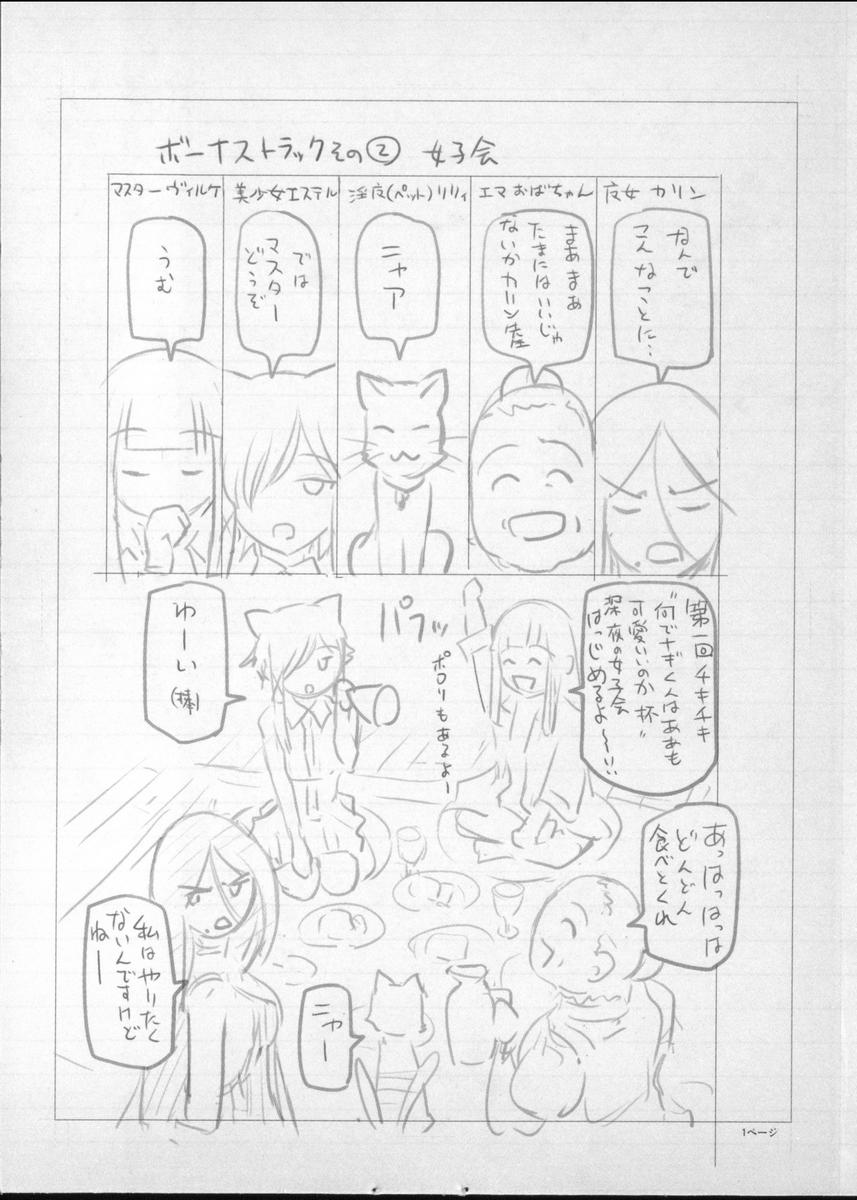 ボーナストラックその② 女子会
夜女 カリン
なんで
こんなことに…
エマおばちゃん
まあまあ
たまにはいいじゃ
ないかカリン産
淫皮(ペット)リリィ
ニャア
美少女エステル
では
マスター
どうぞ
マスターヴィルケ
うむ
第一回チキチキ
“何でナギくんはああも
可愛いいのか杯”
深夜の女子会
はっじめるよ〜!!
ポロリもあるよー
パフッ
わーい
(棒)
あっはっはっは
どんどん
食べとくれ
ニャー
私はやりたく
ないんですけど
ねー
1ページ